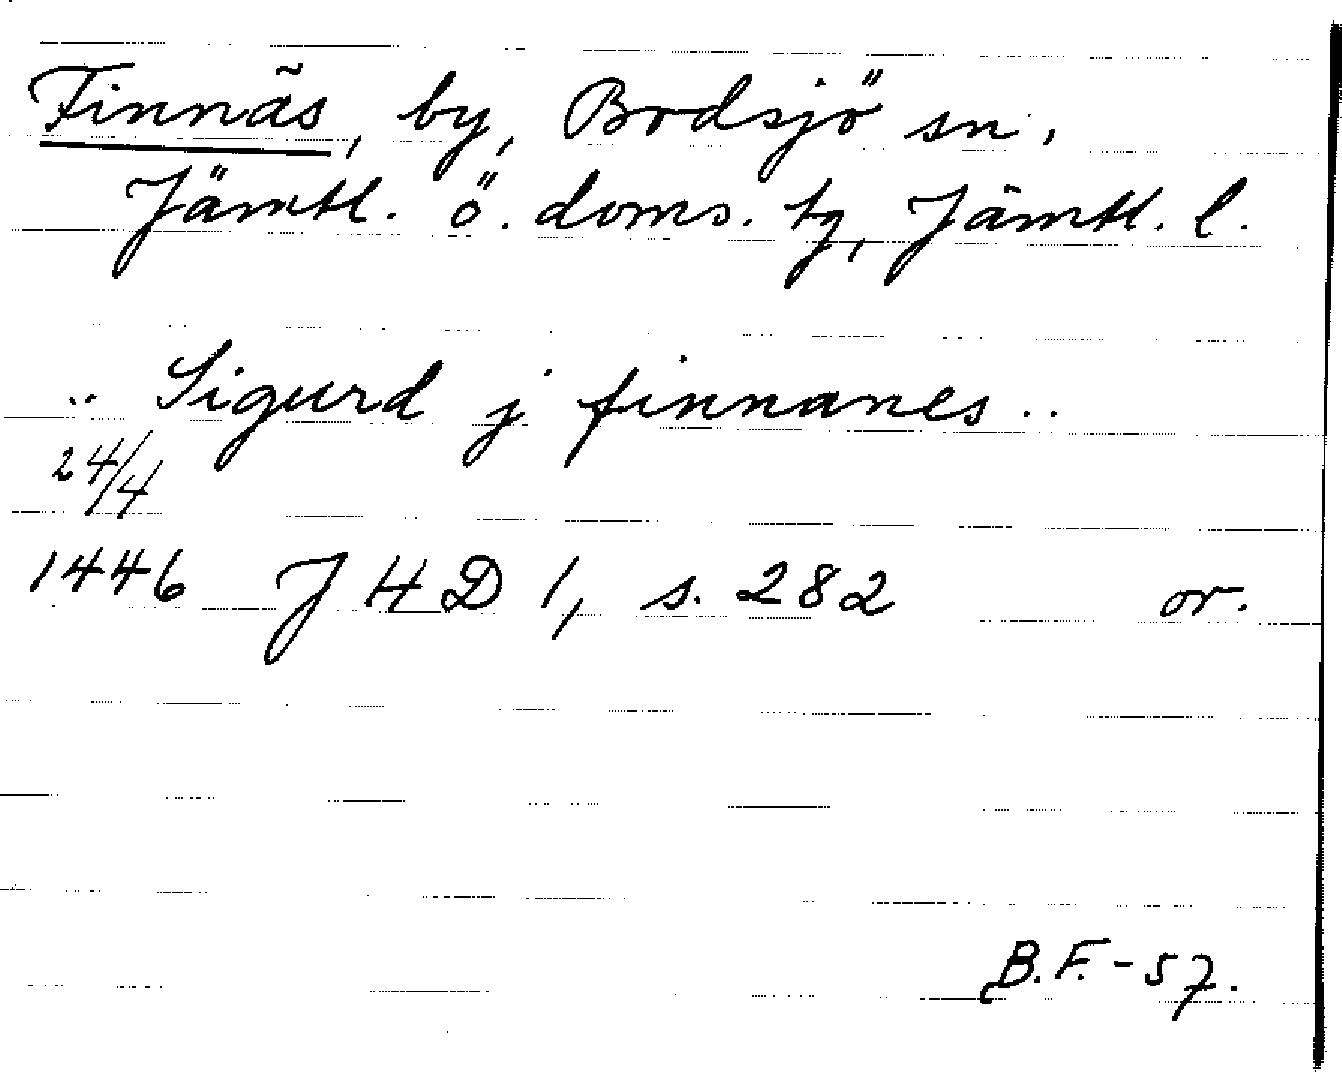 Finnäs, by, Bodsjö sn,
Jämtl. ö. doms. tg, Jämtl. l.
.. Sigurd j finnanes ..
24/4
1446 JHD 1, s. 282 or.
B.F.-57.